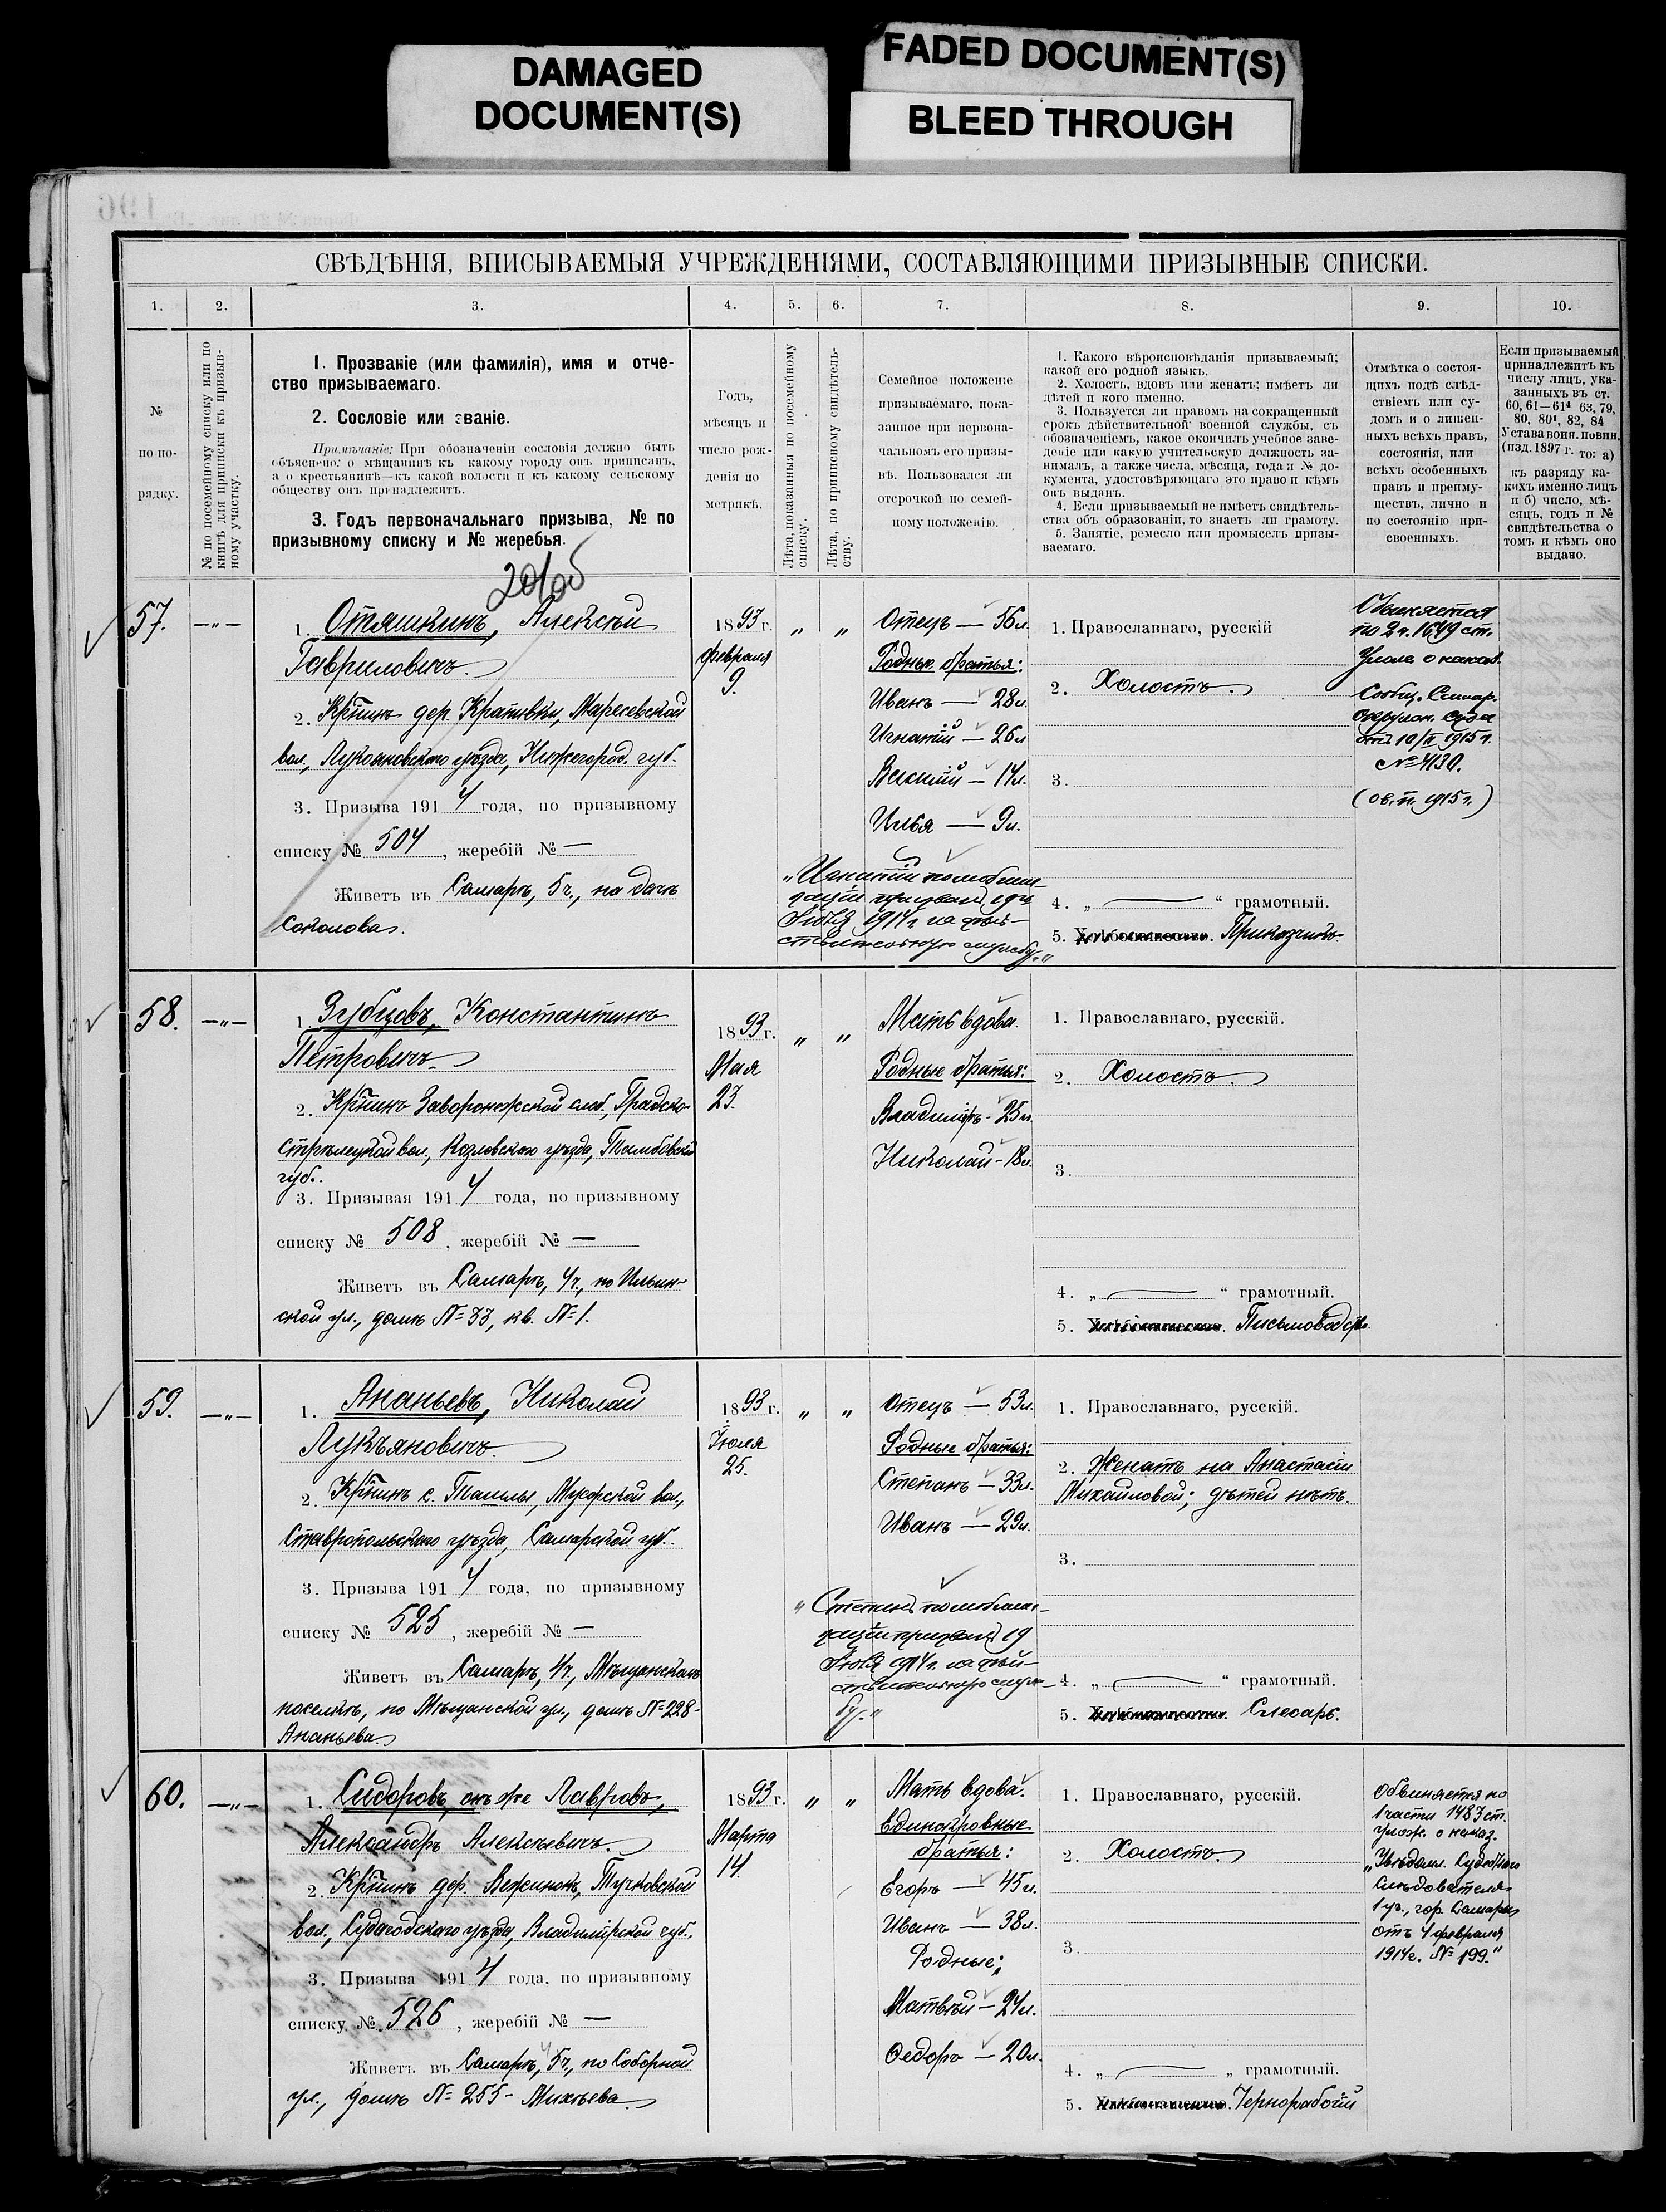 DAMAGED
DOCUMENT(S)
FADED DOCUMENT(S)
BLEED THROUGH
СВѢДѢНІЯ, ВПИСЫВАЕМЫЯ УЧРЕЖДЕНІЯМИ, СОСТАВЛЯЮЩИМИ ПРИЗЫВНЫЕ СПИСКИ.
1. 2. 3. 4. 5. 6. 7. 8. 9. 10.
№
по по-
рядку.
№ по посемейному списку или по
книгѣ для приписки къ призыв-
ному участку.
1. Прозваніе (или фамилія), имя и отче-
ство призываемаго.
2. Сословіе или званіе.
Примѣчаніе: При обозначеніи сословія должно быть
объяснено: о мѣщанинѣ къ какому городу онъ приписанъ,
а о крестьянинѣ—къ какой волости и къ какому сельскому
обществу онъ принадлежитъ.
3. Годъ первоначальнаго призыва, № по
призывному списку и № жеребья.
Годъ,
мѣсяцъ и
число рож-
денія по
метрикѣ.
Лѣта, показанныя по посемейному
списку.
Лѣта, по приписному свидѣтель-
ству.
Семейное положеніе
призываемаго, пока-
занное при первона-
чальномъ его призы-
вѣ. Пользовался ли
отсрочкой по семей-
ному положенію.
1. Какого вѣроисповѣданія призываемый;
какой его родной языкъ.
2. Холостъ, вдовъ или женатъ; имѣетъ ли
дѣтей и кого именно.
3. Пользуется ли правомъ на сокращенный
срокъ дѣйствительной военной службы, съ
обозначеніемъ, какое окончилъ учебное заве-
деніе или какую учительскую должность за-
нималъ, а также числа, мѣсяца, года и № до-
кумента, удостовѣряющаго это право и кѣмъ
онъ выданъ.
4. Если призываемый не имѣетъ свидѣтель-
ства объ образованіи, то знаетъ ли грамоту.
5. Занятіе, ремесло или промыселъ призы-
ваемаго.
Отмѣтка о состоя-
щихъ подъ слѣд-
ствіемъ или су-
домъ и о лишен-
ныхъ всѣхъ правъ,
состоянія, или
всѣхъ особенныхъ
правъ и преиму-
ществъ, лично и
по состоянію при-
своенныхъ.
Если призываемый
принадлежитъ къ
числу лицъ, ука-
занныхъ въ ст.
60, 61—61⁴ 63, 79,
80, 80¹, 82, 84
Устава воин. повин.
(изд. 1897 г. то: а)
къ разряду ка-
кихъ именно лицъ
и б) число, мѣ-
сяцъ, годъ и №
свидѣтельства о
томъ и кѣмъ оно
выдано.
57. —„—
1. Отяшкинъ, Алексѣй
Гавриловичъ.
2. Кр̃нинъ дер. Крапивки, Маресевской
вол., Лукояновскаго уѣзда, Нижегород. губ.
3. Призыва 1914 года, по призывному
списку № 504, жеребій № —
Живетъ въ Самарѣ, 5ч., на дачѣ
Соколова.
1893 г.
февраля
9.
„ „
Отецъ — 56 л.
Родные братья:
Иванъ — 28 л.
Игнатій — 26 л
Василій — 14 л.
Илья — 9 л.
„Игнатій по мобили-
заціи призванъ 19
Іюля 1914 г. на дѣй-
ствительную службу.“
1. Православнаго, русскій
2. Холостъ.
3.
4. „ — “ грамотный.
5. Хлѣбопашество. Приказчикъ.
Обвиняется
по 2 ч. 1649 ст.
Улож. о наказ.
Сообщ. Самар.
Окружн. Суда
отъ 10/II 1915 г.
№ 4130.
58. —„—
1. Зубцовъ, Константинъ
Петровичъ.
2. Кр̃нинъ Заворонежской слоб., Градско-
стрѣлецкой вол., Козловскаго уѣзда, Тамбовской
губ.
3. Призывая 1914 года, по призывному
списку № 508, жеребій № —
Живетъ въ Самарѣ, 4ч., по Ильин-
ской ул., домъ № 33, кв. № 1.
1893 г.
Мая
23.
„ „
Мать вдова.
Родные братья:
Владиміръ - 25 л.
Николай - 18 л.
1. Православнаго, русскій.
2. Холостъ.
3.
4. „ — “ грамотный.
5. Хлѣбопашество. Письмоводст.
59. —„—
1. Ананьевъ, Николай
Лукьяновичъ.
2. Кр̃нинъ с. Ташлы, Мусорской вол.,
Ставропольскаго уѣзда, Самарской губ.
3. Призыва 1914 года, по призывному
списку № 525, жеребій № —
Живетъ въ Самарѣ, 4ч., Мѣщанскомъ
поселкѣ, по Мѣщанской ул., домъ № 228-
Ананьева.
1893 г.
Іюля
25.
„ „
Отецъ — 53 л.
Родные братья:
Степанъ — 33 л.
Иванъ — 29 л.
„Степанъ по мобили-
заціи призванъ 19
Іюля 1914 г. на дѣй-
ствительную служ-
бу.“
1. Православнаго, русскій.
2. Женатъ на Анастасіи
Михайловой; дѣтей нѣтъ.
3.
4. „ — “ грамотный.
5. Хлѣбопашество. Слесарь.
60. —„—
1. Сидоровъ, онъ же Лавровъ,
Александръ Алексѣевичъ.
2. Кр̃нинъ дер. Вежинокъ, Тучковской
вол., Судогодскаго уѣзда, Владимірской губ.
3. Призыва 1914 года, по призывному
списку № 526, жеребій № —
Живетъ въ Самарѣ, 5ч., по Соборной
ул., домъ № 255- Михѣева.
1893 г.
Марта
14.
„ „
Мать вдова.
Единокровные
братья:
Егоръ — 45 л.
Иванъ — 38 л.
Родные:
Матвѣй — 24 л.
Федоръ — 20 л.
1. Православнаго, русскій.
2. Холостъ.
3.
4. „ — „ грамотный.
5. Хлѣбопашество. Чернорабочій
Обвиняется по
1 части 1483 ст.
улож. о наказ.
„Увѣдомл. Судебнаго
Слѣдователя
1 уч., гор. Самары
отъ 4 февраля
1914 г. № 199.“